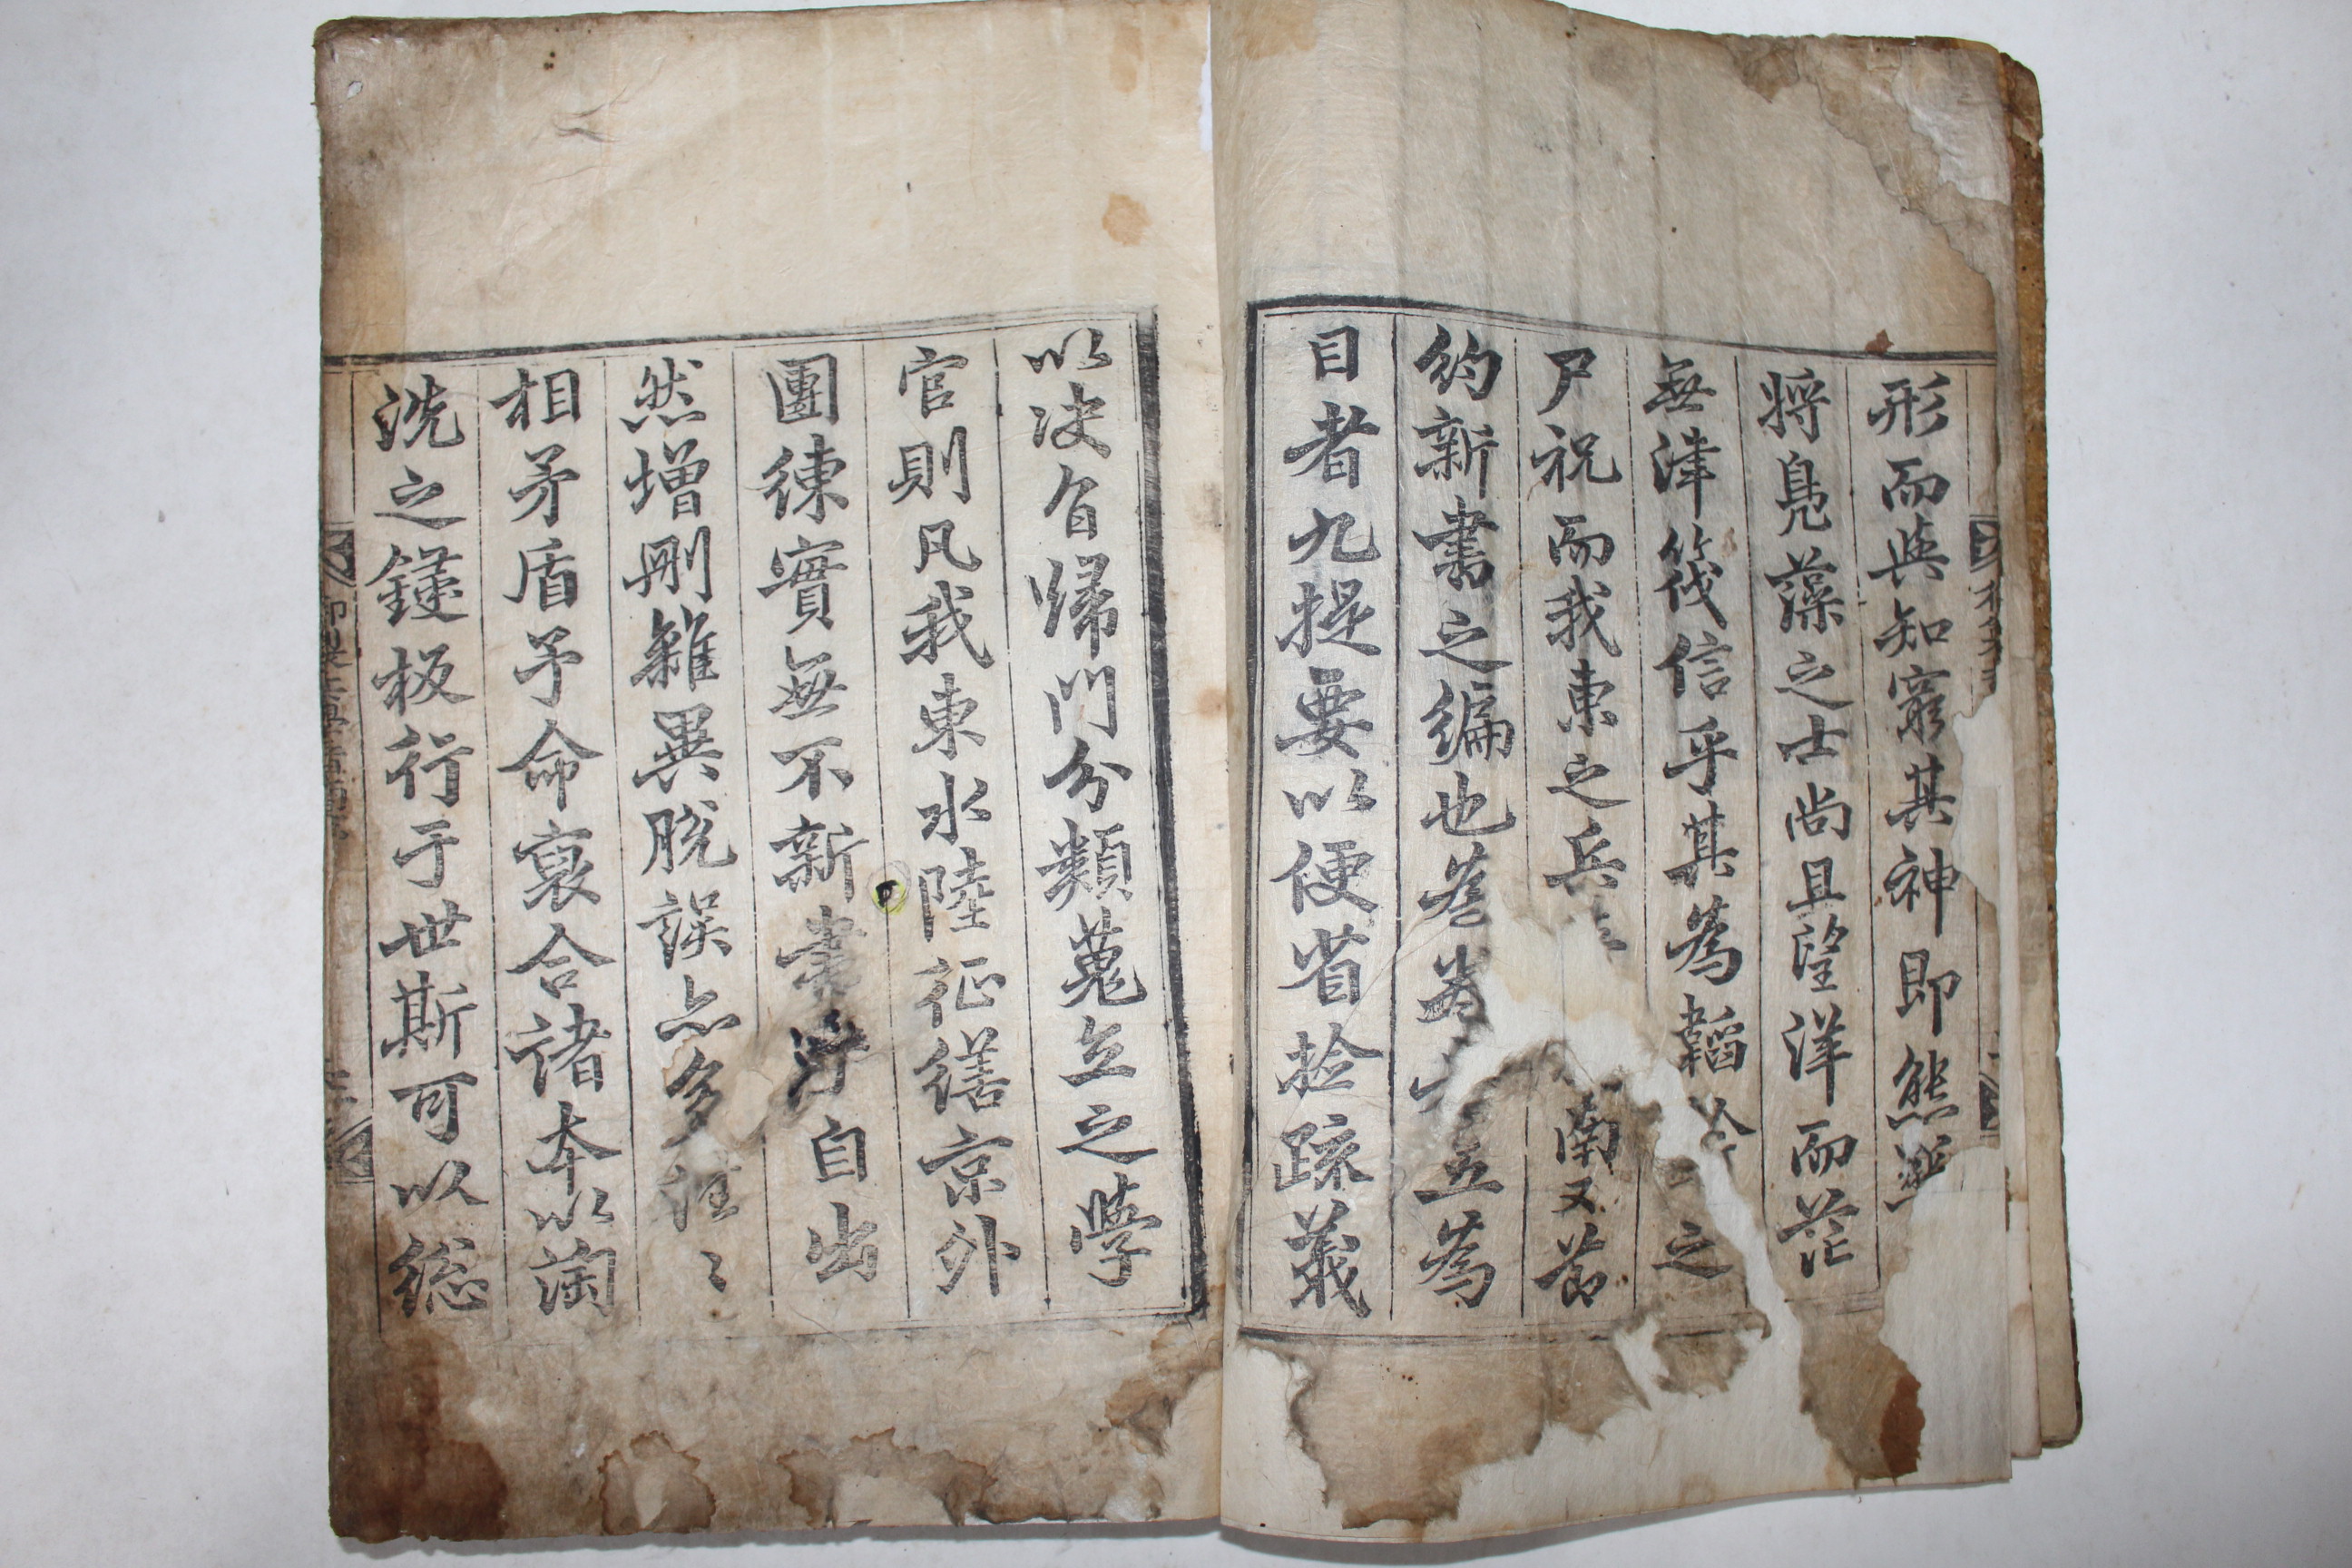 形而與知窮其神即熊
將鳧藻之士尚且望洋而茫
無津筏信乎其為韜鈐之
尸祝而我東之兵南又節
約新書之編也為卷五為
目者九提要以便省撿疏義
以决自歸門分類蒐立之學
官則凡我東水陸征繕京外
團練實無不新書乎自出
然增刪雜異脫誤亦多往〻
相矛盾予命裒合諸本以淘
洗之鋟板行于世斯可以總